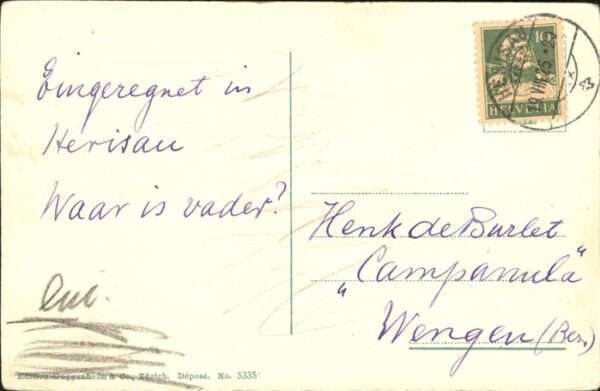 Eingeregnet in
Herisau
Waar is vader?
Henk de Burlet
„Campanula"
Wengen (Ber.)
10
HELVETIA
HERISAU
Guggenheim & Co., Zürich. Déposé. No. 5335